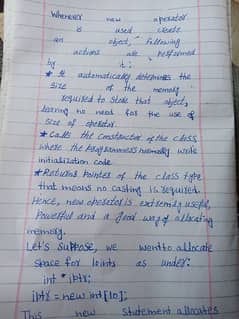 Whenever new operator
is used create
an object, following
actions are performed
by it:
* It automatically determines the
size of the memory
required to store that object,
leaving no need for the use of
size of operator.
* Calls the constructor of the class,
where the programmers normally write
initialization code.
* Returns pointer of the class type
that means no casting is required.
Hence, new operator is extremely useful,
Powerful and a good way of allocating
memory.
Let's suppose, we want to allocate
space for 10 ints as under:
int * iptr;
iptr = new int [10];
This new statement allocates